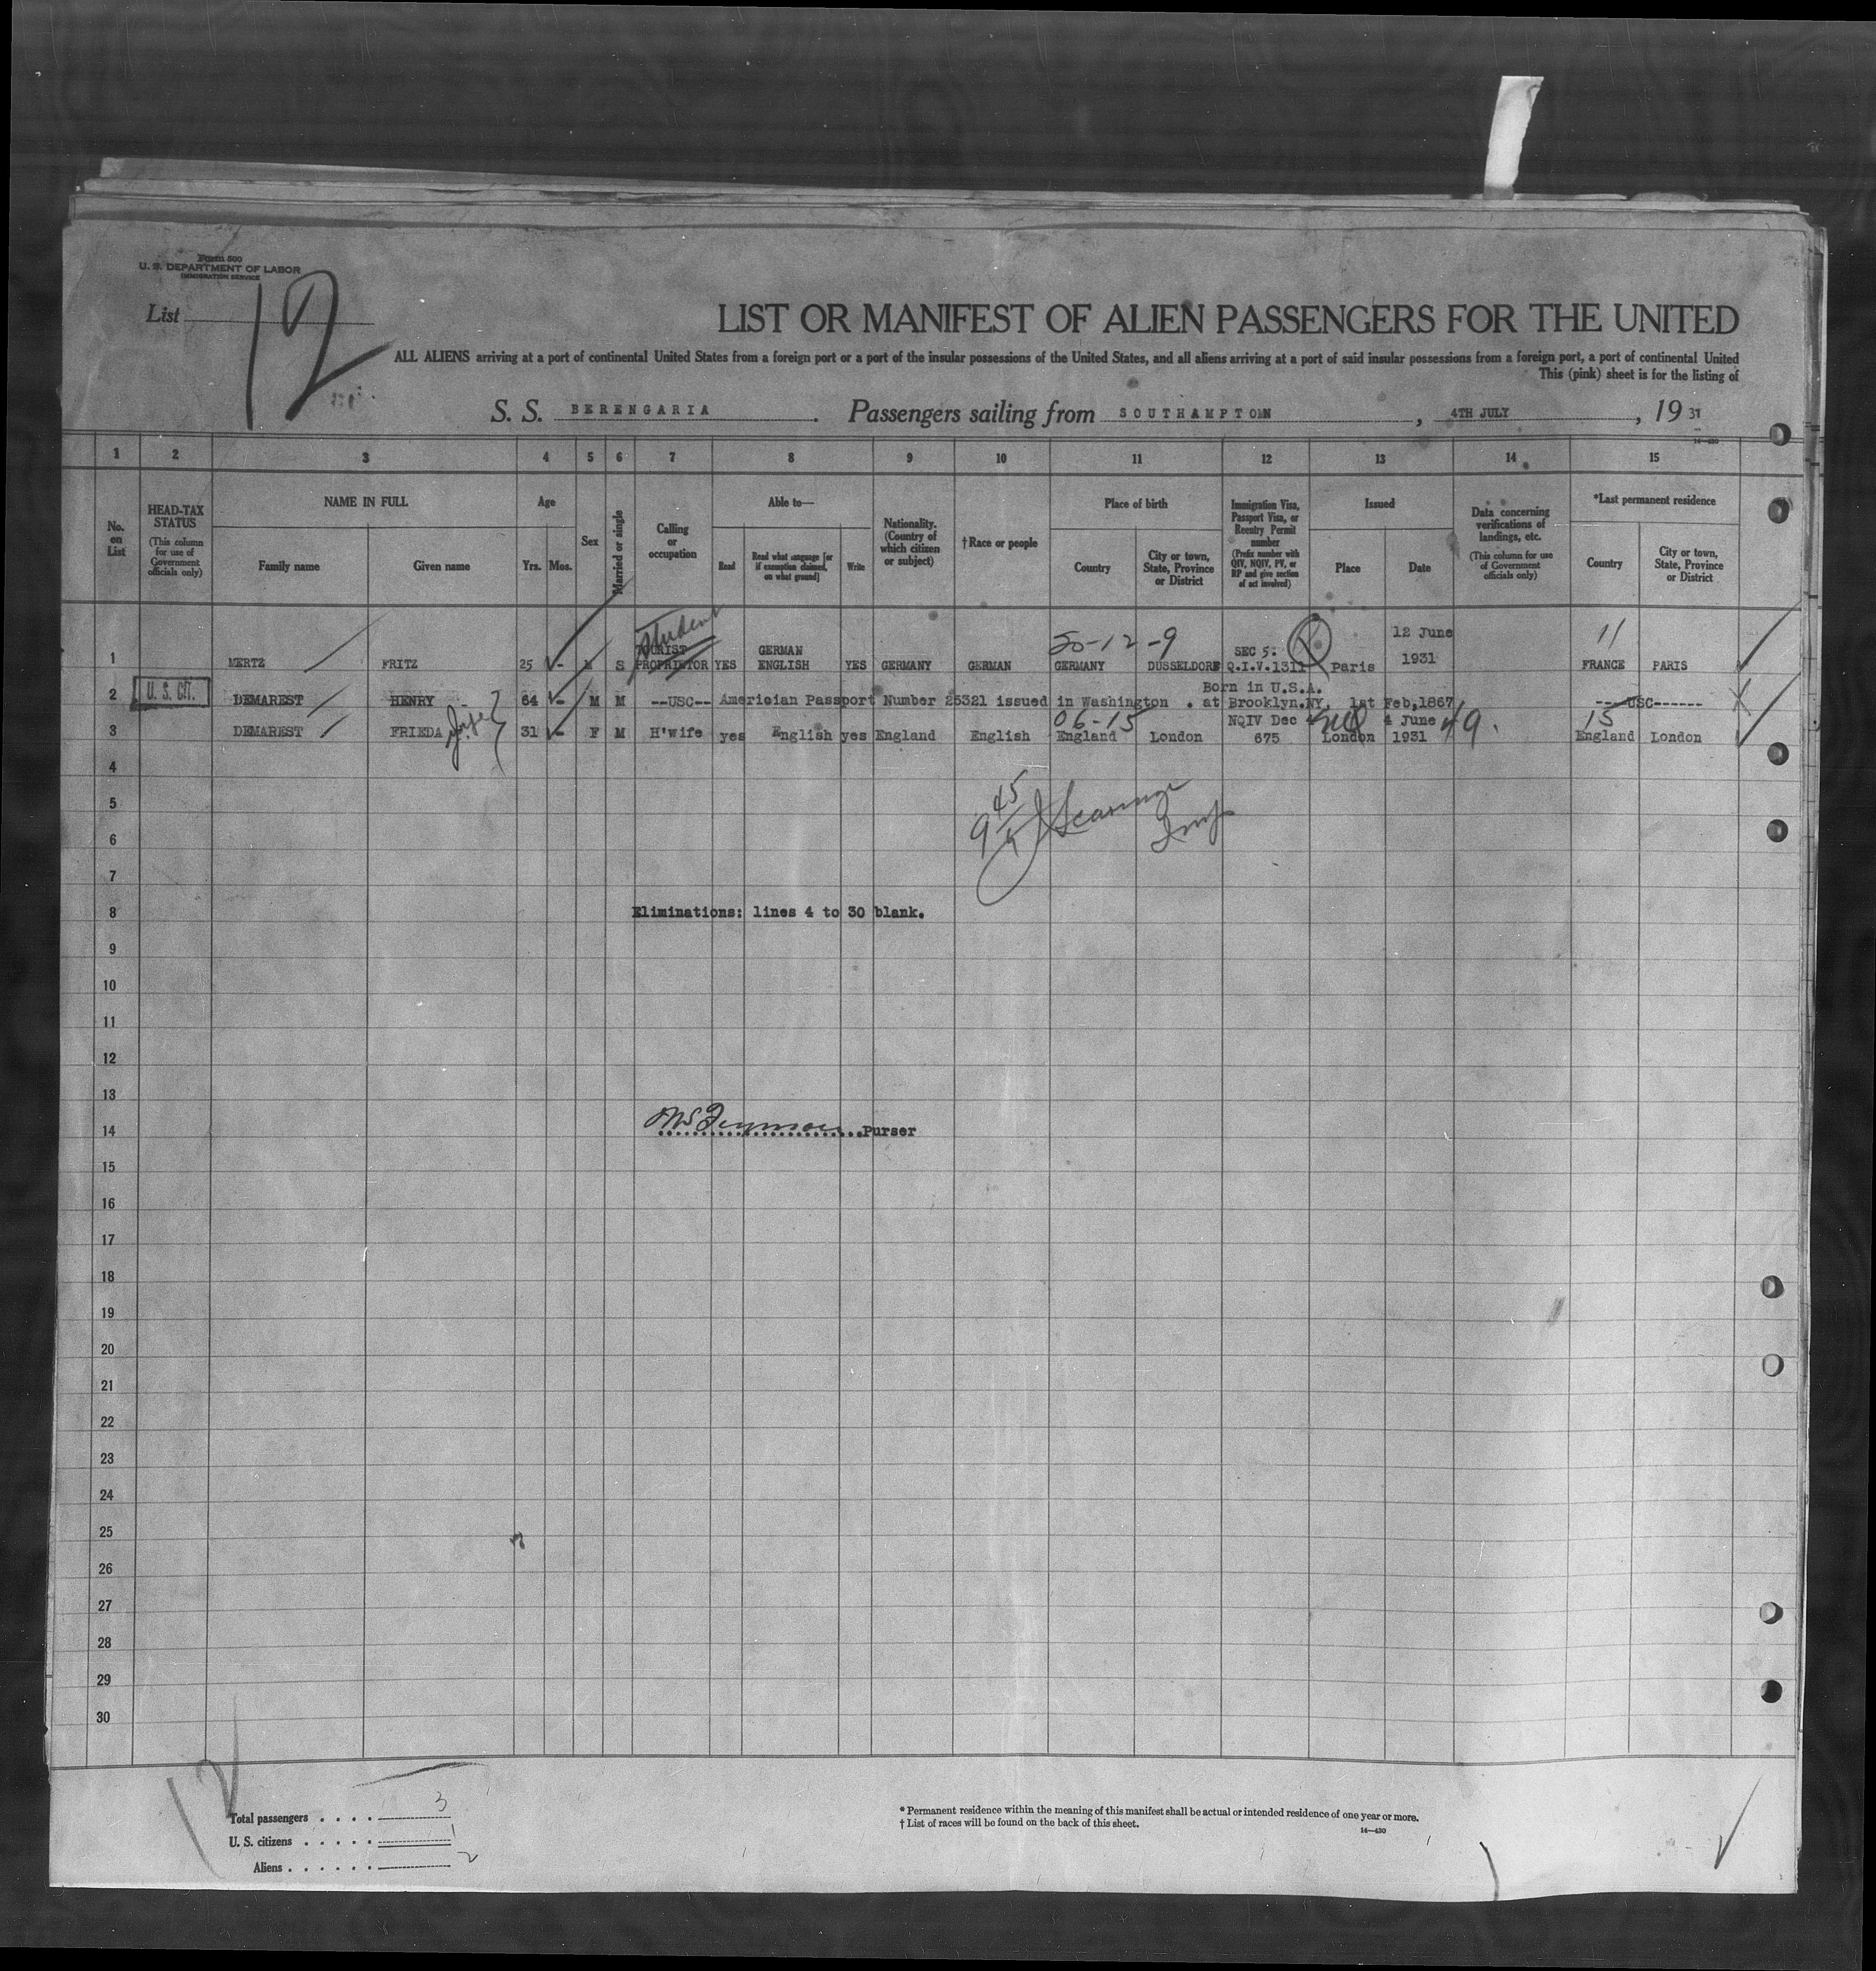 Form 500
U. S. DEPARTMENT OF LABOR
IMMIGRATION SERVICE
List 12
LIST OR MANIFEST OF ALIEN PASSENGERS FOR THE UNITED
ALL ALIENS arriving at a port of continental United States from a foreign port or a port of the insular possessions of the United States, and all aliens arriving at a port of said insular possessions from a foreign port, a port of continental United
This (pink) sheet is for the listing of
S. S. BERENGARIA. Passengers sailing from SOUTHAMPTON, 4TH JULY, 19 31
14—430
1 2 3 4 5 6 7 8 9 10 11 12 13 14 15
No. on List
HEAD-TAX STATUS (This column for use of Government officials only)
NAME IN FULL
Family name
Given name
Age
Yrs. Mos.
Sex
Married or single
Calling or occupation
Able to—
Read
Read what language [or if exemption claimed, on what ground]
Write
Nationality. (Country of which citizen or subject)
† Race or people
Place of birth
Country
City or town, State, Province or District
Immigration Visa, Passport Visa, or Reentry Permit number (Prefix number with QIV, NQIV, PV, or RP and give section of act involved)
Issued
Place
Date
Data concerning verifications of landings, etc. (This column for use of Government officials only)
*Last permanent residence
Country
City or town, State, Province or District
Student 50-12-9 11
1 MERTZ FRITZ 25 - M S TOURIST PROPRIETOR YES GERMAN ENGLISH YES GERMANY GERMAN GERMANY DUSSELDORF SEC 5. Q.I.V.1311 Paris 12 June 1931 FRANCE PARIS
2 U. S. CIT. DEMAREST HENRY - 64 - M M --USC-- Americian Passport Number 25321 issued in Washington . Born in U.S.A. at Brooklyn.NY. 1st Feb,1867 ---USC------
06-15 15
3 DEMAREST FRIEDA 31 - F M H'wife yes English yes England English England London NQIV Dec 675 London 4 June 1931 England London
4
5 9 45
6
7
8 Eliminations: lines 4 to 30 blank.
9
10
11
12
13
14 Purser
15
16
17
18
19
20
21
22
23
24
25
26
27
28
29
30
Total passengers . . . . 3
U. S. citizens . . . . . 1
Aliens . . . . . . 2
* Permanent residence within the meaning of this manifest shall be actual or intended residence of one year or more.
† List of races will be found on the back of this sheet.
14—430